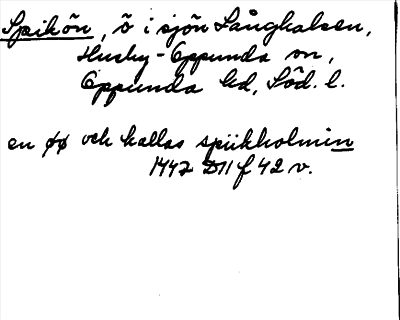 Spikön, ö i sjön Långhalsen,
Husby-Oppunda sn,
Oppunda hd, Söd. l.
en øø och kallas spiikholmin
1447 D11 f 42 v.